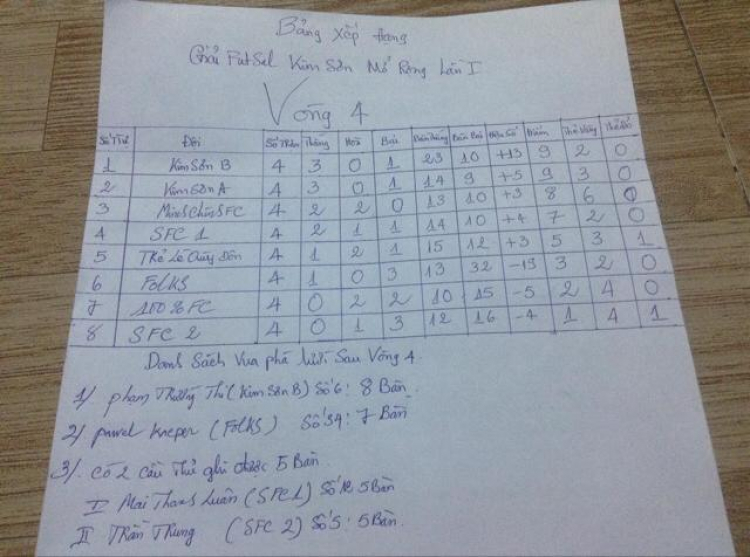 Bảng Xếp Hạng
Giải FutSal Kim Sơn Mở Rộng Lần I
Vòng 4
Số TT Đội Số Trận Thắng Hoà Bại Bàn Thắng Bàn Bại Hiệu Số Điểm Thẻ Vàng Thẻ Đỏ
1 Kim Sơn B 4 3 0 1 23 10 +13 9 2 0
2 Kim Sơn A 4 3 0 1 14 9 +5 9 3 0
3 Minh Châu SFC 4 2 2 0 13 10 +3 8 6 0
4 SFC 1 4 2 1 1 14 10 +4 7 2 0
5 Trẻ Lê Quý Đôn 4 1 2 1 15 12 +3 5 3 1
6 FOLKS 4 1 0 3 13 32 -19 3 2 0
7 100% FC 4 0 2 2 10 15 -5 2 4 0
8 SFC 2 4 0 1 3 12 16 -4 1 4 1
Danh Sách Vua phá lưới Sau Vòng 4
1/ phạm Trường Thi (Kim Sơn B) Số 6: 8 Bàn
2/ pawel Kneper (FOLKS) Số 34: 7 Bàn
3/. Có 2 Cầu Thủ ghi được 5 Bàn
I Mai Thanh Luân (SFC1) Số 12 5 Bàn
II Trần Trung (SFC 2) Số 5: 5 Bàn.